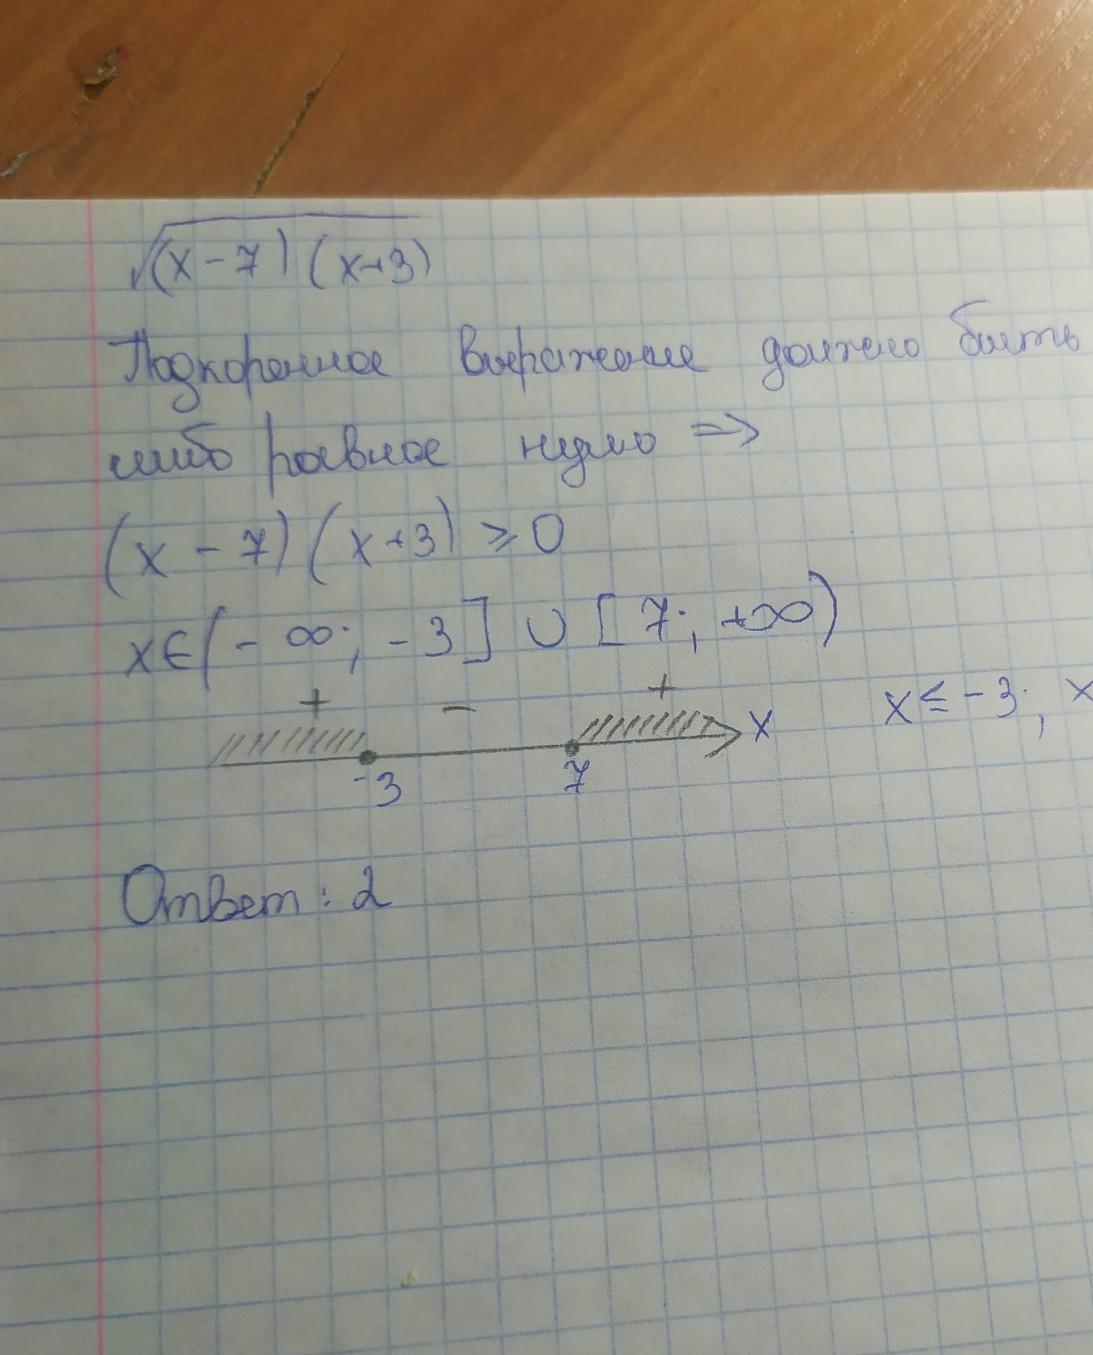 √(x-7)(x+3)
Подкоренное выражение должно быть
либо равное нулю =>
(x - 7)(x+3) ≥ 0
x∈(-∞; -3] ∪ [7; +∞)
+ - +
x
x ≤ -3; x
-3 7
Ответ: 2